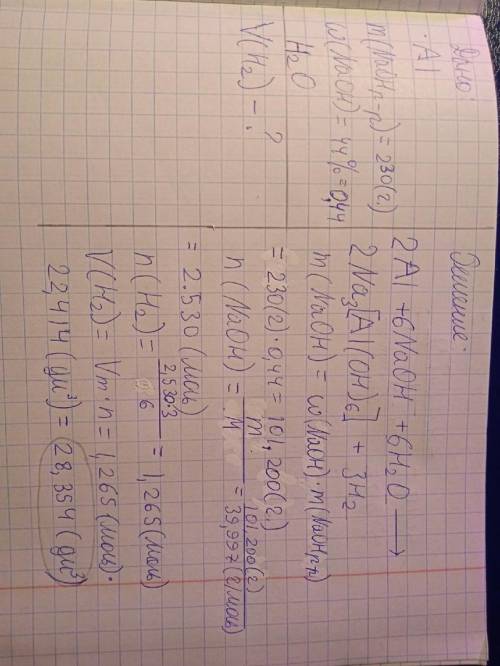 Дано:
Al
m(NaOH р-р) = 230 (г.)
w(NaOH) = 44% = 0,44
H₂O
V(H₂) - ?
Решение:
2Al + 6NaOH + 6H₂O ⟶
2Na₃[Al(OH)₆] + 3H₂
m(NaOH) = w(NaOH) · m(NaOH р-р)
= 230 (г) · 0,44 = 101,200 (г.)
n(NaOH) = m/M = 101,200 (г)/39,997 (г/моль)
= 2.530 (моль)
n(H₂) = 2530·3/6 = 1,265 (моль)
V(H₂) = Vm · n = 1,265 (моль) ·
22,414 (дм³) = 28,354 (дм³)